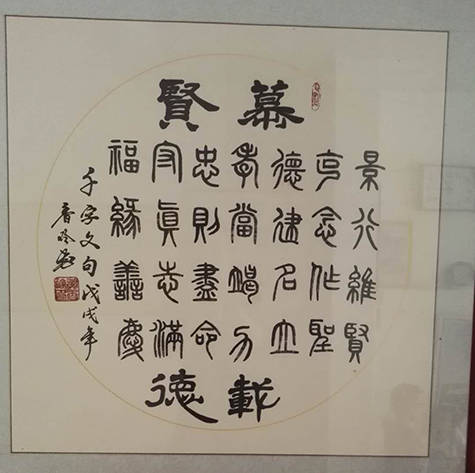 慕賢
景行維賢
克念作聖
德建名立
孝當竭力
忠則盡命
守眞志滿
福緣善慶
載德
千字文句戊戌年